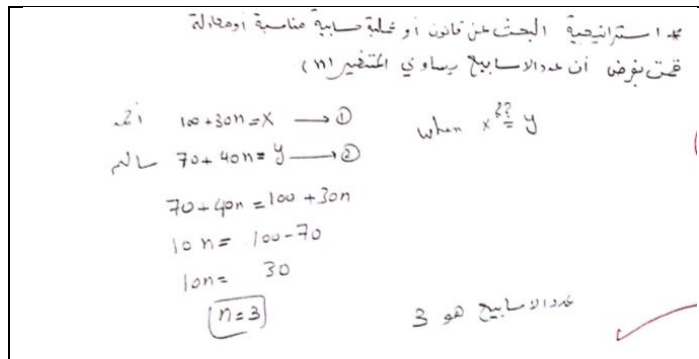 * استراتيجية البحث عن قانون أو عملية حسابية مناسبة أو معادلة
قمت بفرض أن عدد الاسابيع يساوي المتغير (n)
أحمد 100+30n=x → ①
when x ?? = y
سالم 70+40n=y → ②
70+40n=100+30n
10n=100-70
10n= 30
n=3
عدد الاسابيع هو 3